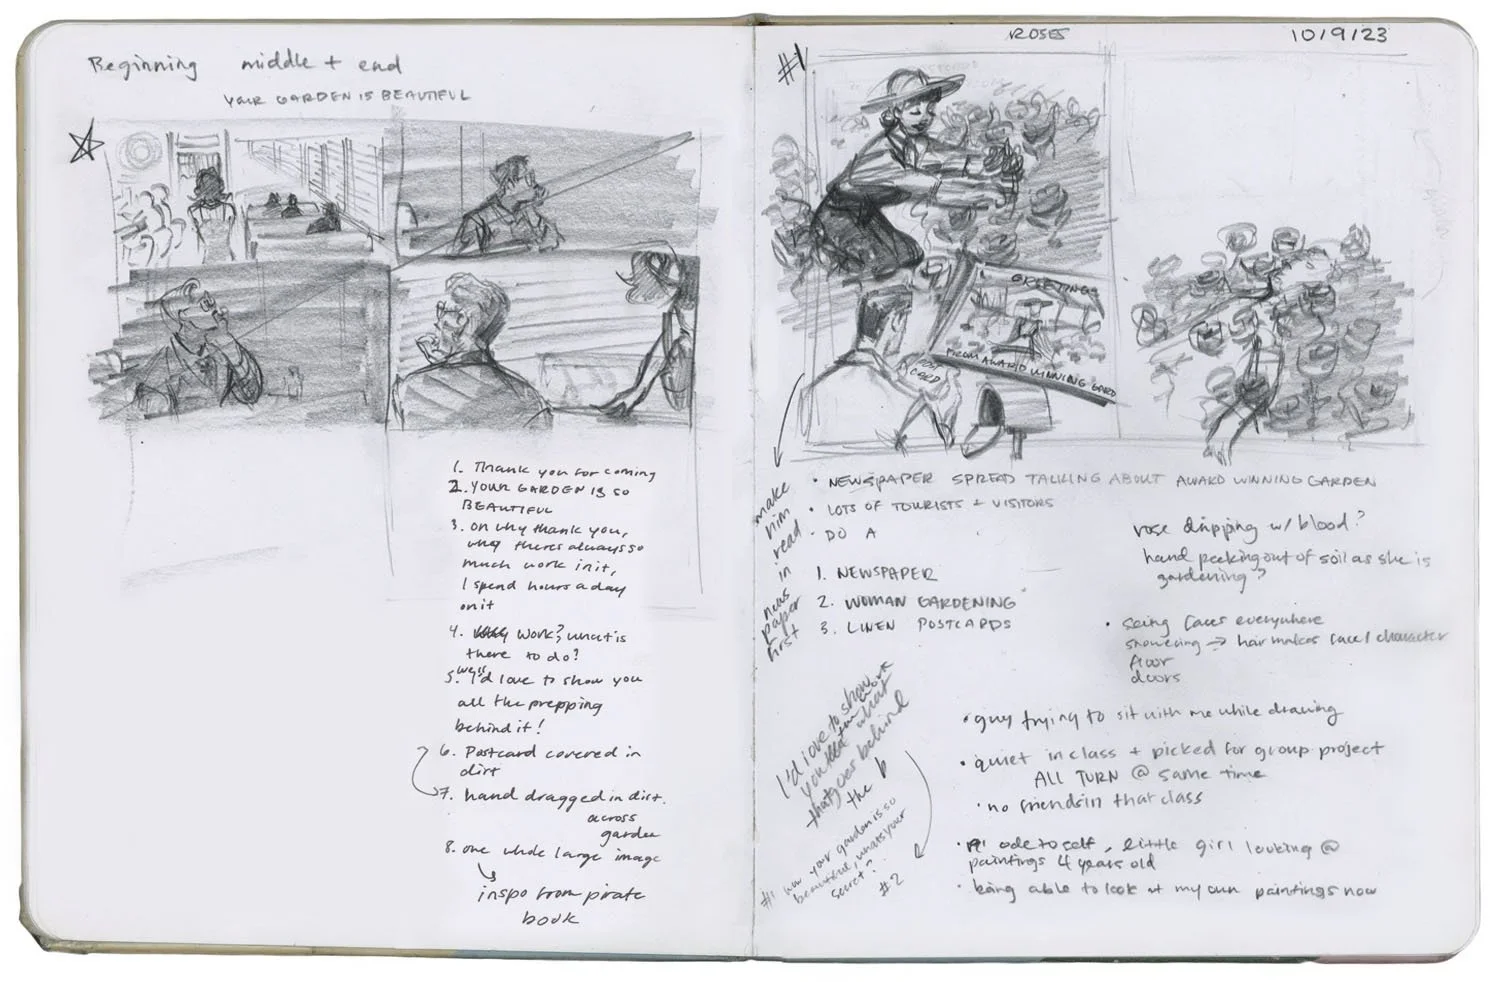 Beginning middle + end
YOUR GARDEN IS BEAUTIFUL
1. Thank you for coming
2. YOUR GARDEN IS SO
BEAUTIFUL
3. Oh why thank you,
why theres always so
much work in it,
I spend hours a day
on it
4. Work? what is
there to do?
5. well I'd love to show you
all the prepping
behind it!
6. Postcard covered in
dirt
7. hand dragged in dirt.
across
garden
8. one whole large image
inspo from pirate
book
ROSES
10/9/23
#1
GREETINGS
FROM AWARD WINNING GARD
POST
CARD
make
him
read
in
news
paper
first
• NEWSPAPER SPREAD TALKING ABOUT AWARD WINNING GARDEN
• LOTS OF TOURISTS + VISITORS
• DO A
1. NEWSPAPER
2. WOMAN GARDENING
3. LINEN POSTCARDS
rose dripping w/ blood?
hand peeking out of soil as she is
gardening?
• seing faces everywhere
showering → hair makes face / character
floor
doors
• guy trying to sit with me while drawing
• quiet in class + picked for group project
ALL TURN @ same time
• no friends in that class
• ode to self, little girl looking @
paintings 4 years old
• being able to look at my own paintings now
I'd love to show
you what
that goes behind
the b
#1 wow your garden is so
beautiful, whats your
secret?
#2